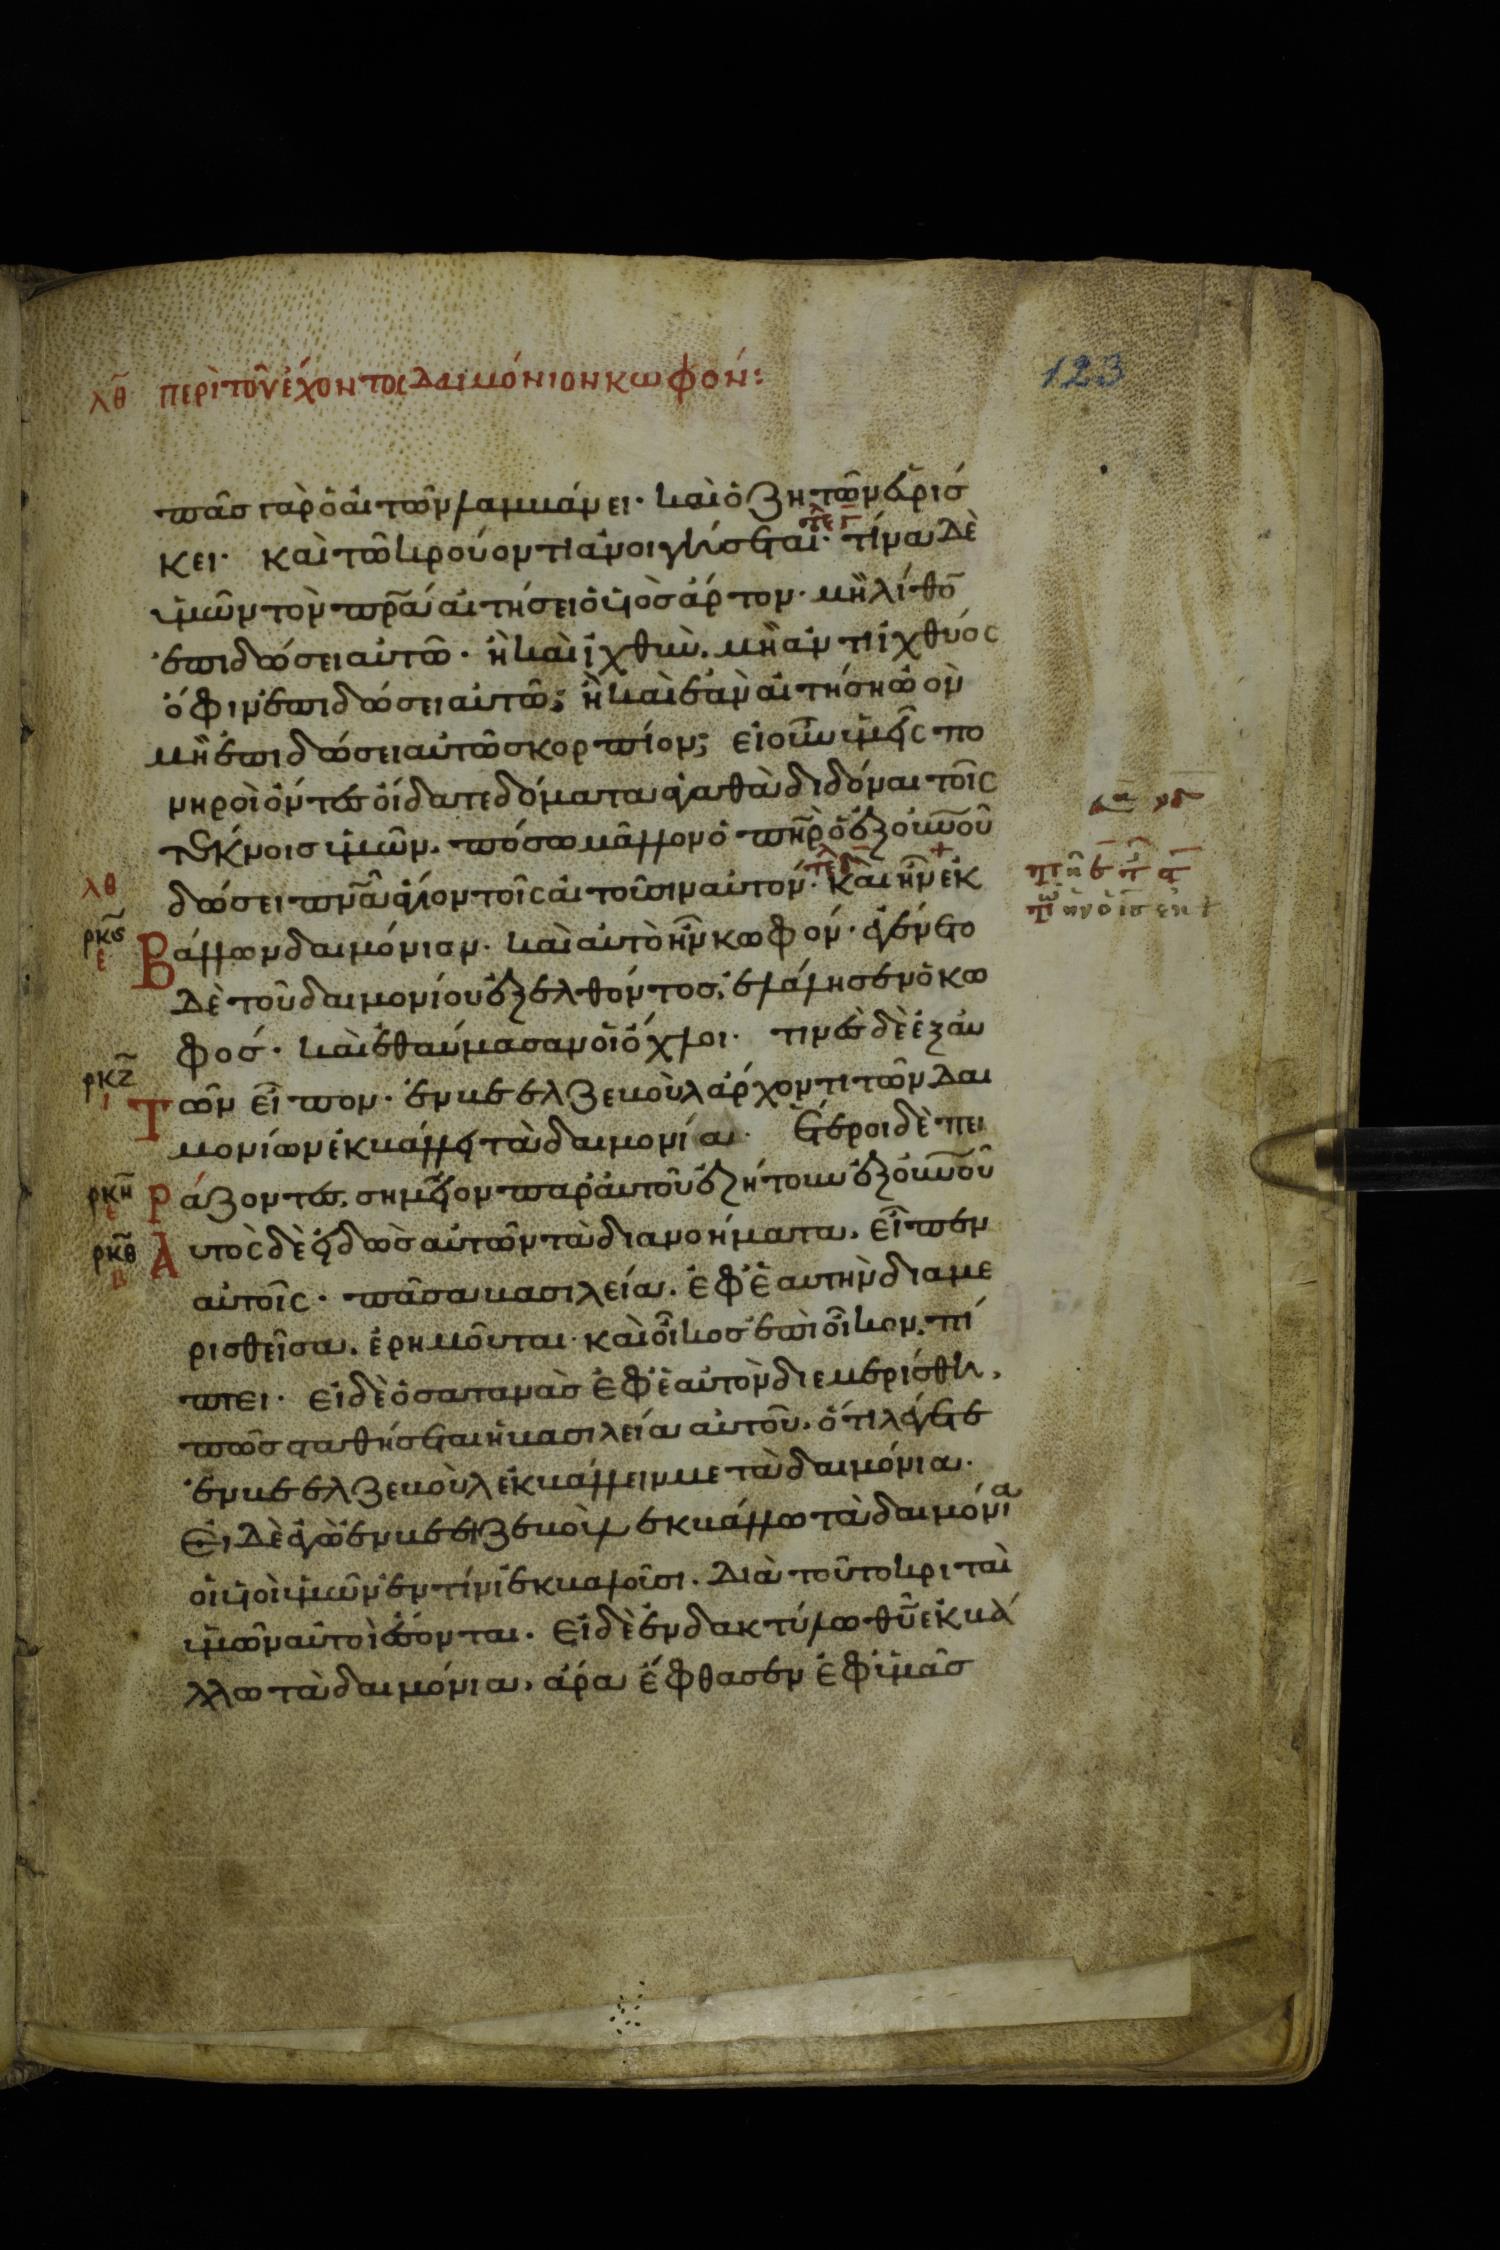 λθ περὶ τοῦ ἔχοντος δαιμόνιον κωφόν:
123
πᾶσ γὰρ ὁ αἰτῶν λαμβάνει· καὶ ὁ ζητῶν εὑρίσ
κει· καὶ τῶ κρούοντι ἀνοιγήσεται· τίνα δὲ
ὑμῶν τὸν πρᾱ αἰτήσει ὁ υἱὸσ ἄρτον· μὴ λίθο̄
ἐπιδώσει αὐτῶ· ἢ καὶ ἰχθὺν. μὴ ἀντὶ ἰχθύος
ὄφιν ἐπιδώσει αὐτῶ; ἢ καὶ ἐὰν αἰτήση ὠὸν
μὴ ἐπιδώσει αὐτῶ σκορπίον; εἰ οὖν ὑμεῖς πο
νηροὶ ὄντεσ οἴδατε δόματα ἀγαθὰ διδόναι τοῖς
τέκνοισ ὑμῶν. πόσω μᾶλλον ὁ πη̄ρ ὁ ἐξ οὐνοῦ
δώσει πνᾱ ἅγιον τοῖς αἰτοῦσιν αὐτόν· καὶ ἦν ἐκ
λθ
ρκς
ε
Βάλλων δαιμόνιον· καὶ αὐτὸ ἦν κωφόν· ἐγένετο
δὲ τοῦ δαιμονίου ἐξελθόντοσ, ἐλάλησεν ὁ κω
φόσ· καὶ ἐθαύμασαν οἱ ὄχλοι· τινὲσ δὲ ἐξ αὐ
ρκζ
ι
Τῶν εἶπον· ἐν βεελζεβοὺλ ἄρχοντι τῶν δαι
μονίων ἐκβάλλει τὰ δαιμονία· ἕτεροι δὲ πει
ρκη
Ράζοντεσ, σημεῖον παρ αὐτοῦ ἐζήτουν ἐξ οὐνοῦ
ρκθ
β
Αὐτὸς δὲ εἰδὼσ αὐτῶν τὰ διανοήματα. εἶπεν
αὐτοῖς· πᾶσα βασιλεία. ἐφ ἑαυτὴν διαμε
ρισθεῖσα. ἐρημοῦται· καὶ οἶκοσ ἐπὶ οἶκον. πί
πτει· εἰ δὲ ὁ σατανᾶσ ἐφ ἑαυτὸν διεμερίσθη,
πῶσ σταθήσεται ἡ βασιλεία αὐτοῦ. ὅτι λέγετε
ἐν βεελζεβοὺλ ἐκβάλλειν με τὰ δαιμόνια.
Εἰ δὲ ἐγὼ ἐν βεελζεβοὺλ ἐκβάλλω τὰ δαιμόνια
οἱ υἱοὶ ὑμῶν ἐν τίνι ἐκβαλοῦσι. διὰ τοῦτο κριταὶ
ὑμῶν αὐτοὶ ἔσονται. εἰ δὲ ἐν δακτύλω θῡ ἐκβά
λλω τὰ δαιμόνια, ἄρα ἔφθασεν ἐφ ὑμᾶσ